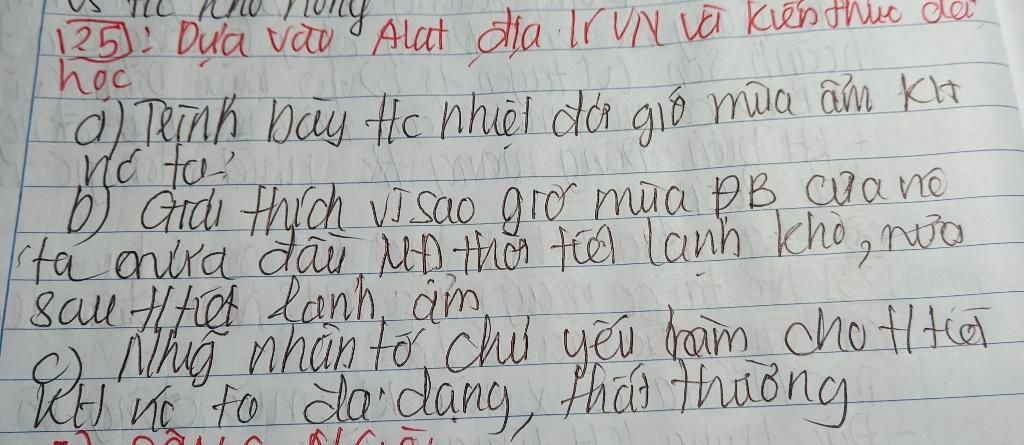 125): Dựa vào Alat địa lí VN và kiến thức đã
học
a) Trình bày t/c nhiệt đới gió mùa ẩm KH
nc ta:
b) Giải thích vì sao gió mùa ĐB của nc
ta nửa đầu MĐ thời tiết lạnh khô, nửa
sau ttiết lạnh, ẩm
c) Nhg nhân tố chủ yếu làm cho ttiết
KH nc ta đa dạng, thất thường